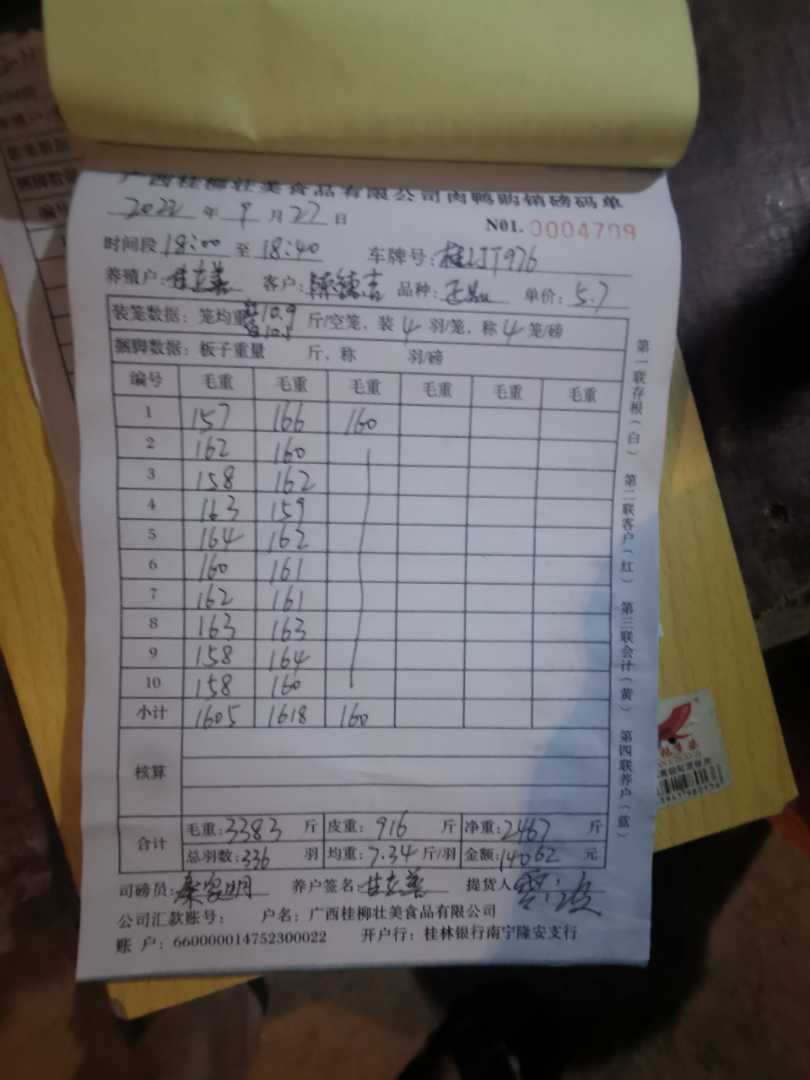 广西桂柳壮美食品有限公司肉鸭购销磅码单
2022 年 9 月 22 日 NO1. 0004709
时间段 18:00 至 18:40 车牌号: 桂LJT976
养殖户: 甘立善 客户: 单价: 5.7
品种:
装笼数据: 笼均重 10.9 斤/空笼, 装 4 羽/笼, 称 4 笼/磅
捆脚数据: 板子重量 斤, 称 羽/磅
编号 毛重 毛重 毛重 毛重 毛重 毛重
1 157 166 160
2 162 160
3 158 162
4 163 159
5 164 162
6 160 161
7 162 161
8 163 163
9 158 164
10 158 160
小计 1605 1618 160
核算
合计
毛重: 3383 斤 皮重: 916 斤 净重: 2467 斤
总羽数: 336 羽 均重: 7.34 斤/羽 金额: 14062 元
司磅员: 养户签名: 甘立善 提货人
公司汇款账号: 户名: 广西桂柳壮美食品有限公司
账 户: 660000014752300022 开户行: 桂林银行南宁隆安支行
第一联存根(白) 第二联客户(红) 第三联会计(黄) 第四联养户(蓝)